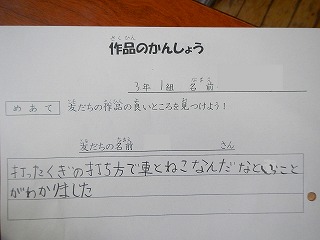 さくひん
作品のかんしょう
3年 1組 名前
なまえ
めあて
友だちの作品の良いところを見つけよう！
友だちの名前 さん
打ったくぎの打ち方で車とねこなんだなということ
がわかりました